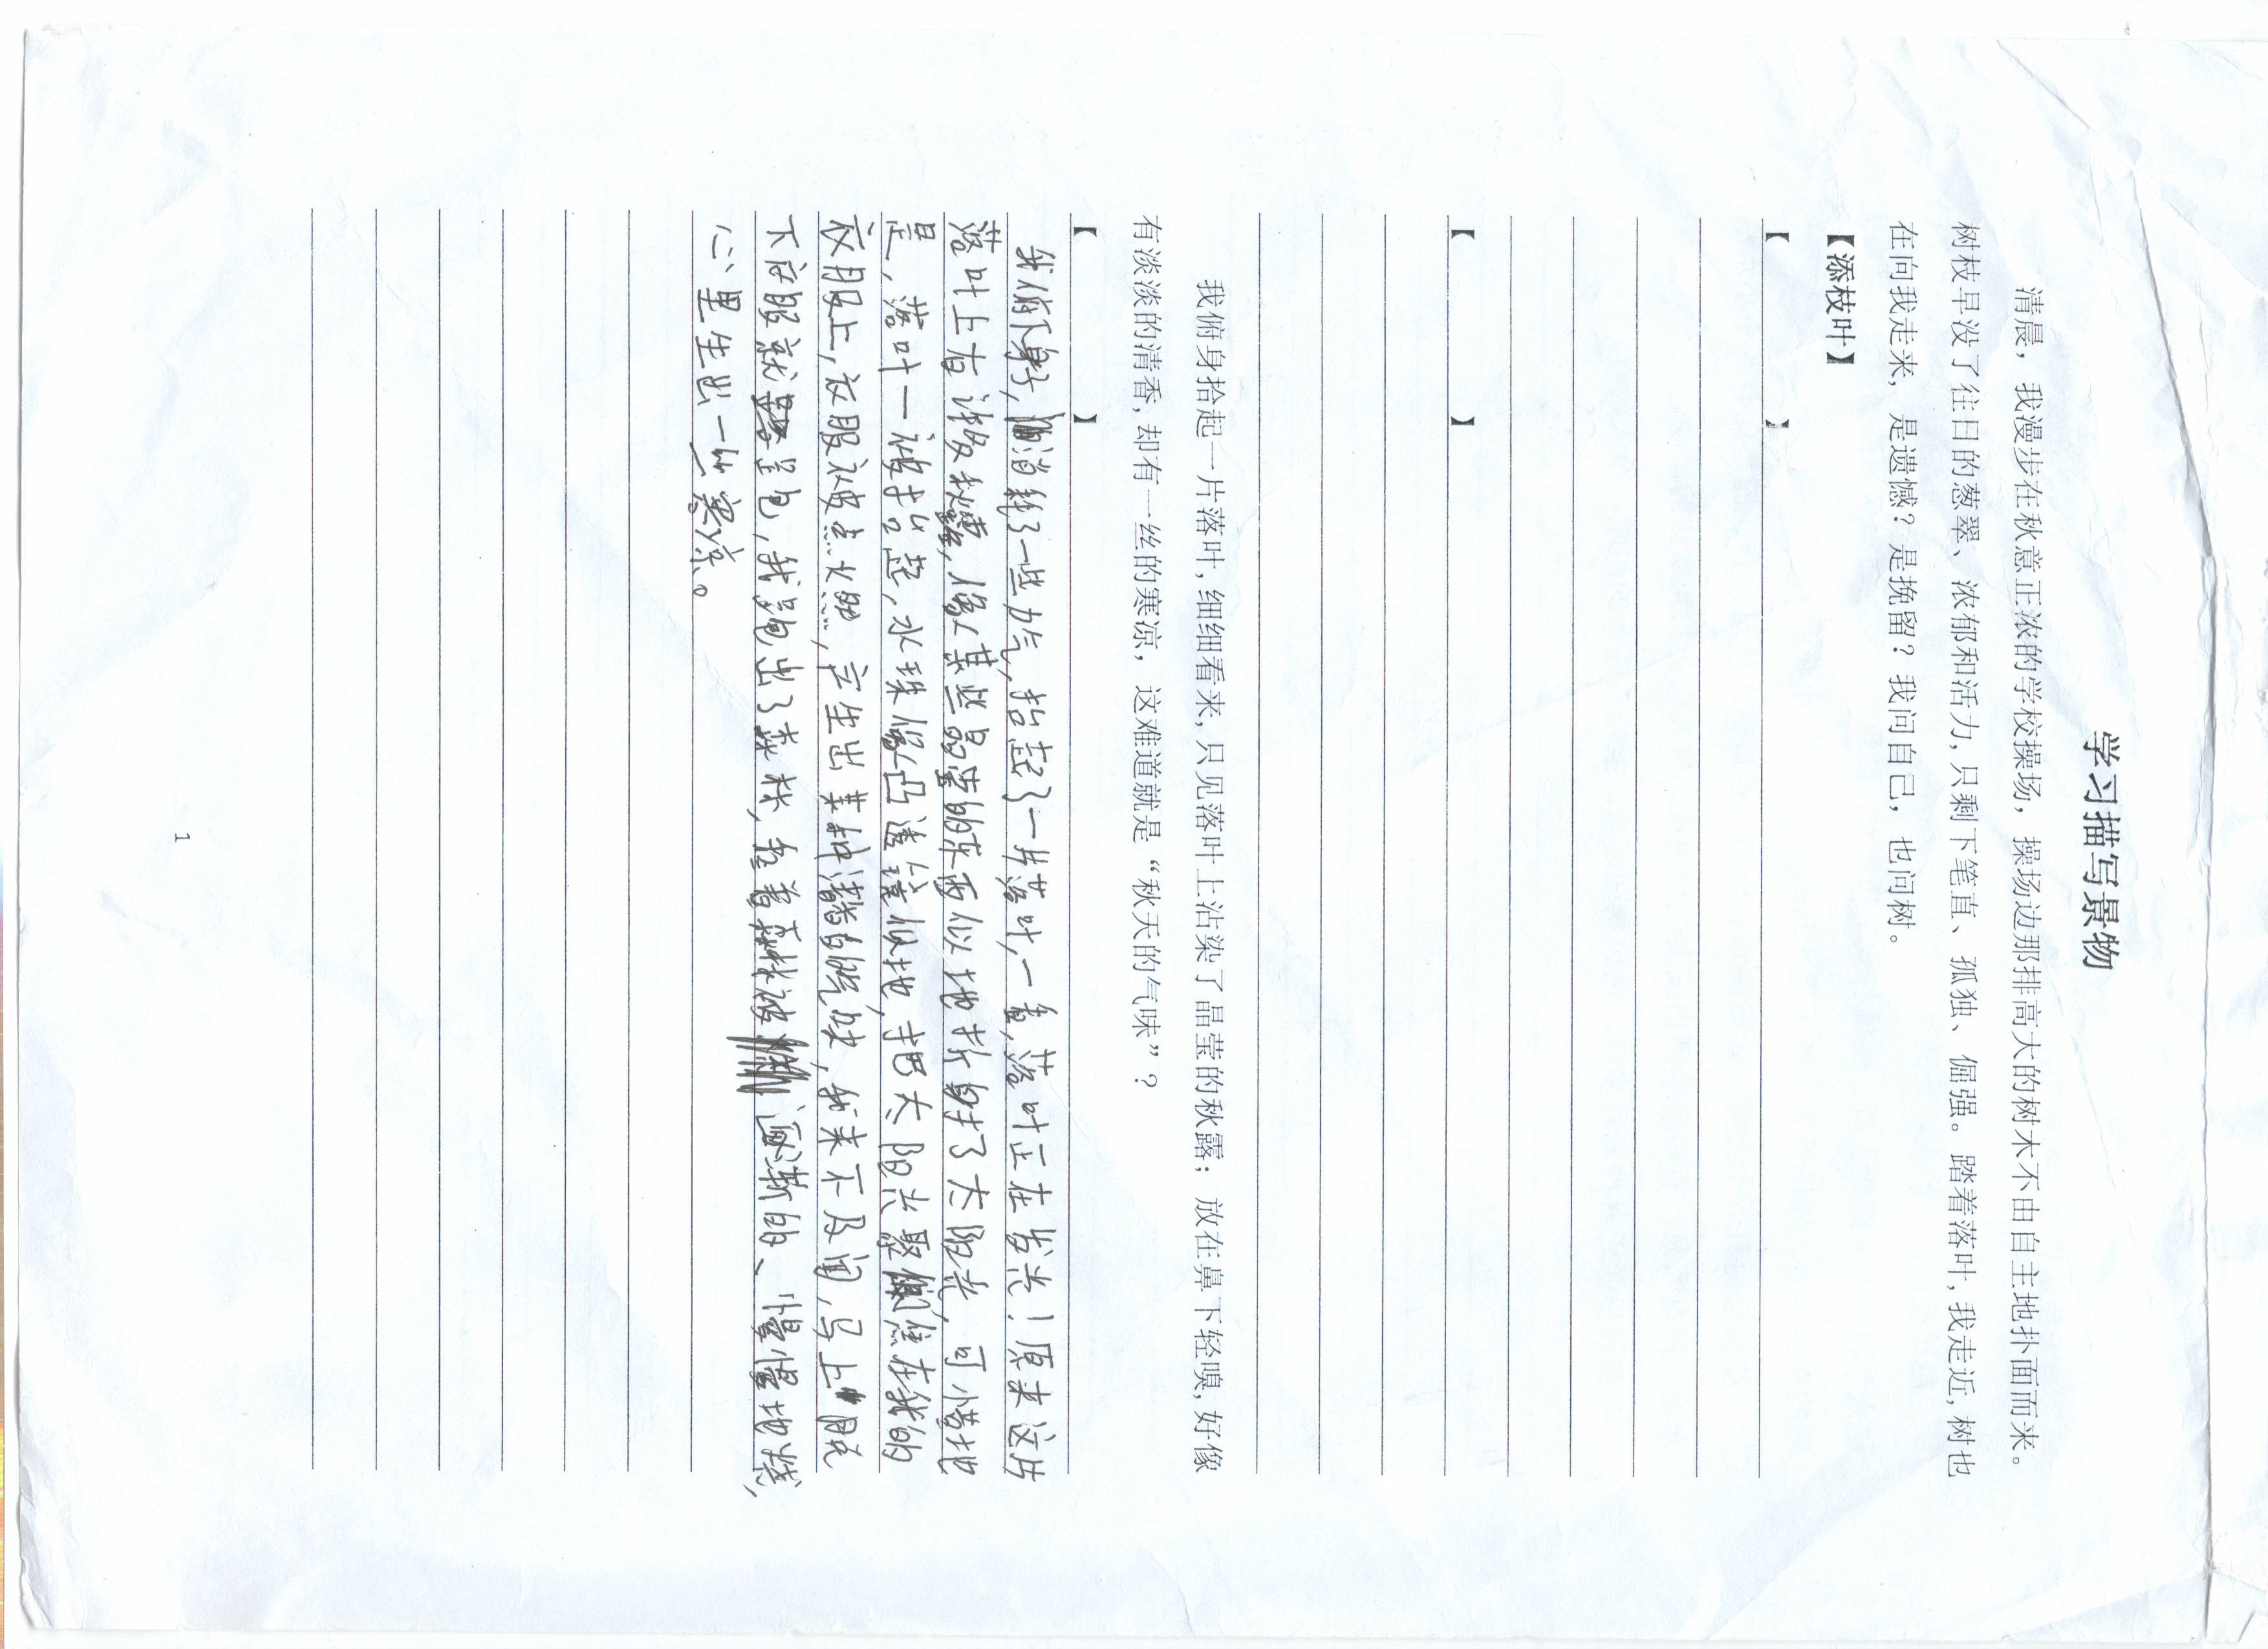 学习描写景物
清晨，我漫步在秋意正浓的学校操场，操场边那排高大的树木不由自主地扑面而来。
树枝早没了往日的葱翠、浓郁和活力，只剩下笔直、孤独、倔强。踏着落叶，我走近，树也
在向我走来，是遗憾？是挽留？我问自己，也问树。
【添枝叶】
【 】
【 】
我俯身拾起一片落叶，细细看来，只见落叶上沾染了晶莹的秋露；放在鼻下轻嗅，好像
有淡淡的清香，却有一丝的寒凉，这难道就是“秋天的气味”？
【 】
我俯下身子，消耗了一些力气，拾起了一片落叶，一看，落叶正在发光！原来这片
落叶上有许多秋露，像某些晶莹的东西似地折射了太阳光，可惜地
是，落叶一被拾起，水珠像凸透镜似地，把太阳光聚焦在我的
衣服上，衣服被点火燃，产生出某种潜的气味，我来不及闻，马上脱
下衣服就跑，我跑出了森林，看着森林被逐渐的、慢慢地烧，
心里生出一丝寒凉。
1